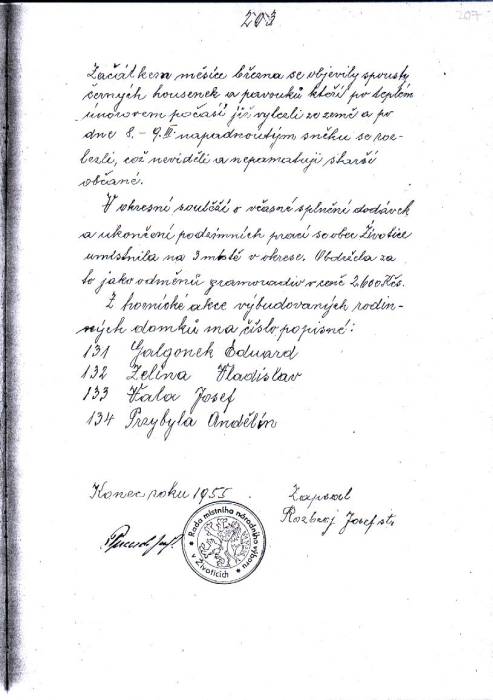 203
207
Začátkem měsíce března se objevily spousty
černých housenek a pavouků kteří po teplém
únorovém počasí již vylezli ze země a po
dne 8. - 9. III napadnoutým sněhu se roz-
lezli, což neviděli a nepamatují starší
občané.
V okresní soutěži o včasné splnění dodávek
a ukončení podzimních prací se obec Životice
umístnila na 3 místě v okrese. Obdržela za
to jako odměnu gramoradio v ceně 2.600 Kčs.
Z hornické akce vybudovaných rodin-
ných domků má číslo popisné:
131 Galgonek Eduard
132 Zelina Vladislav
133 Kala Josef
134 Przybyla Andělín
Konec roku 1955
Zapsal
Josef st.
Rada místního národního výboru
v Životicích